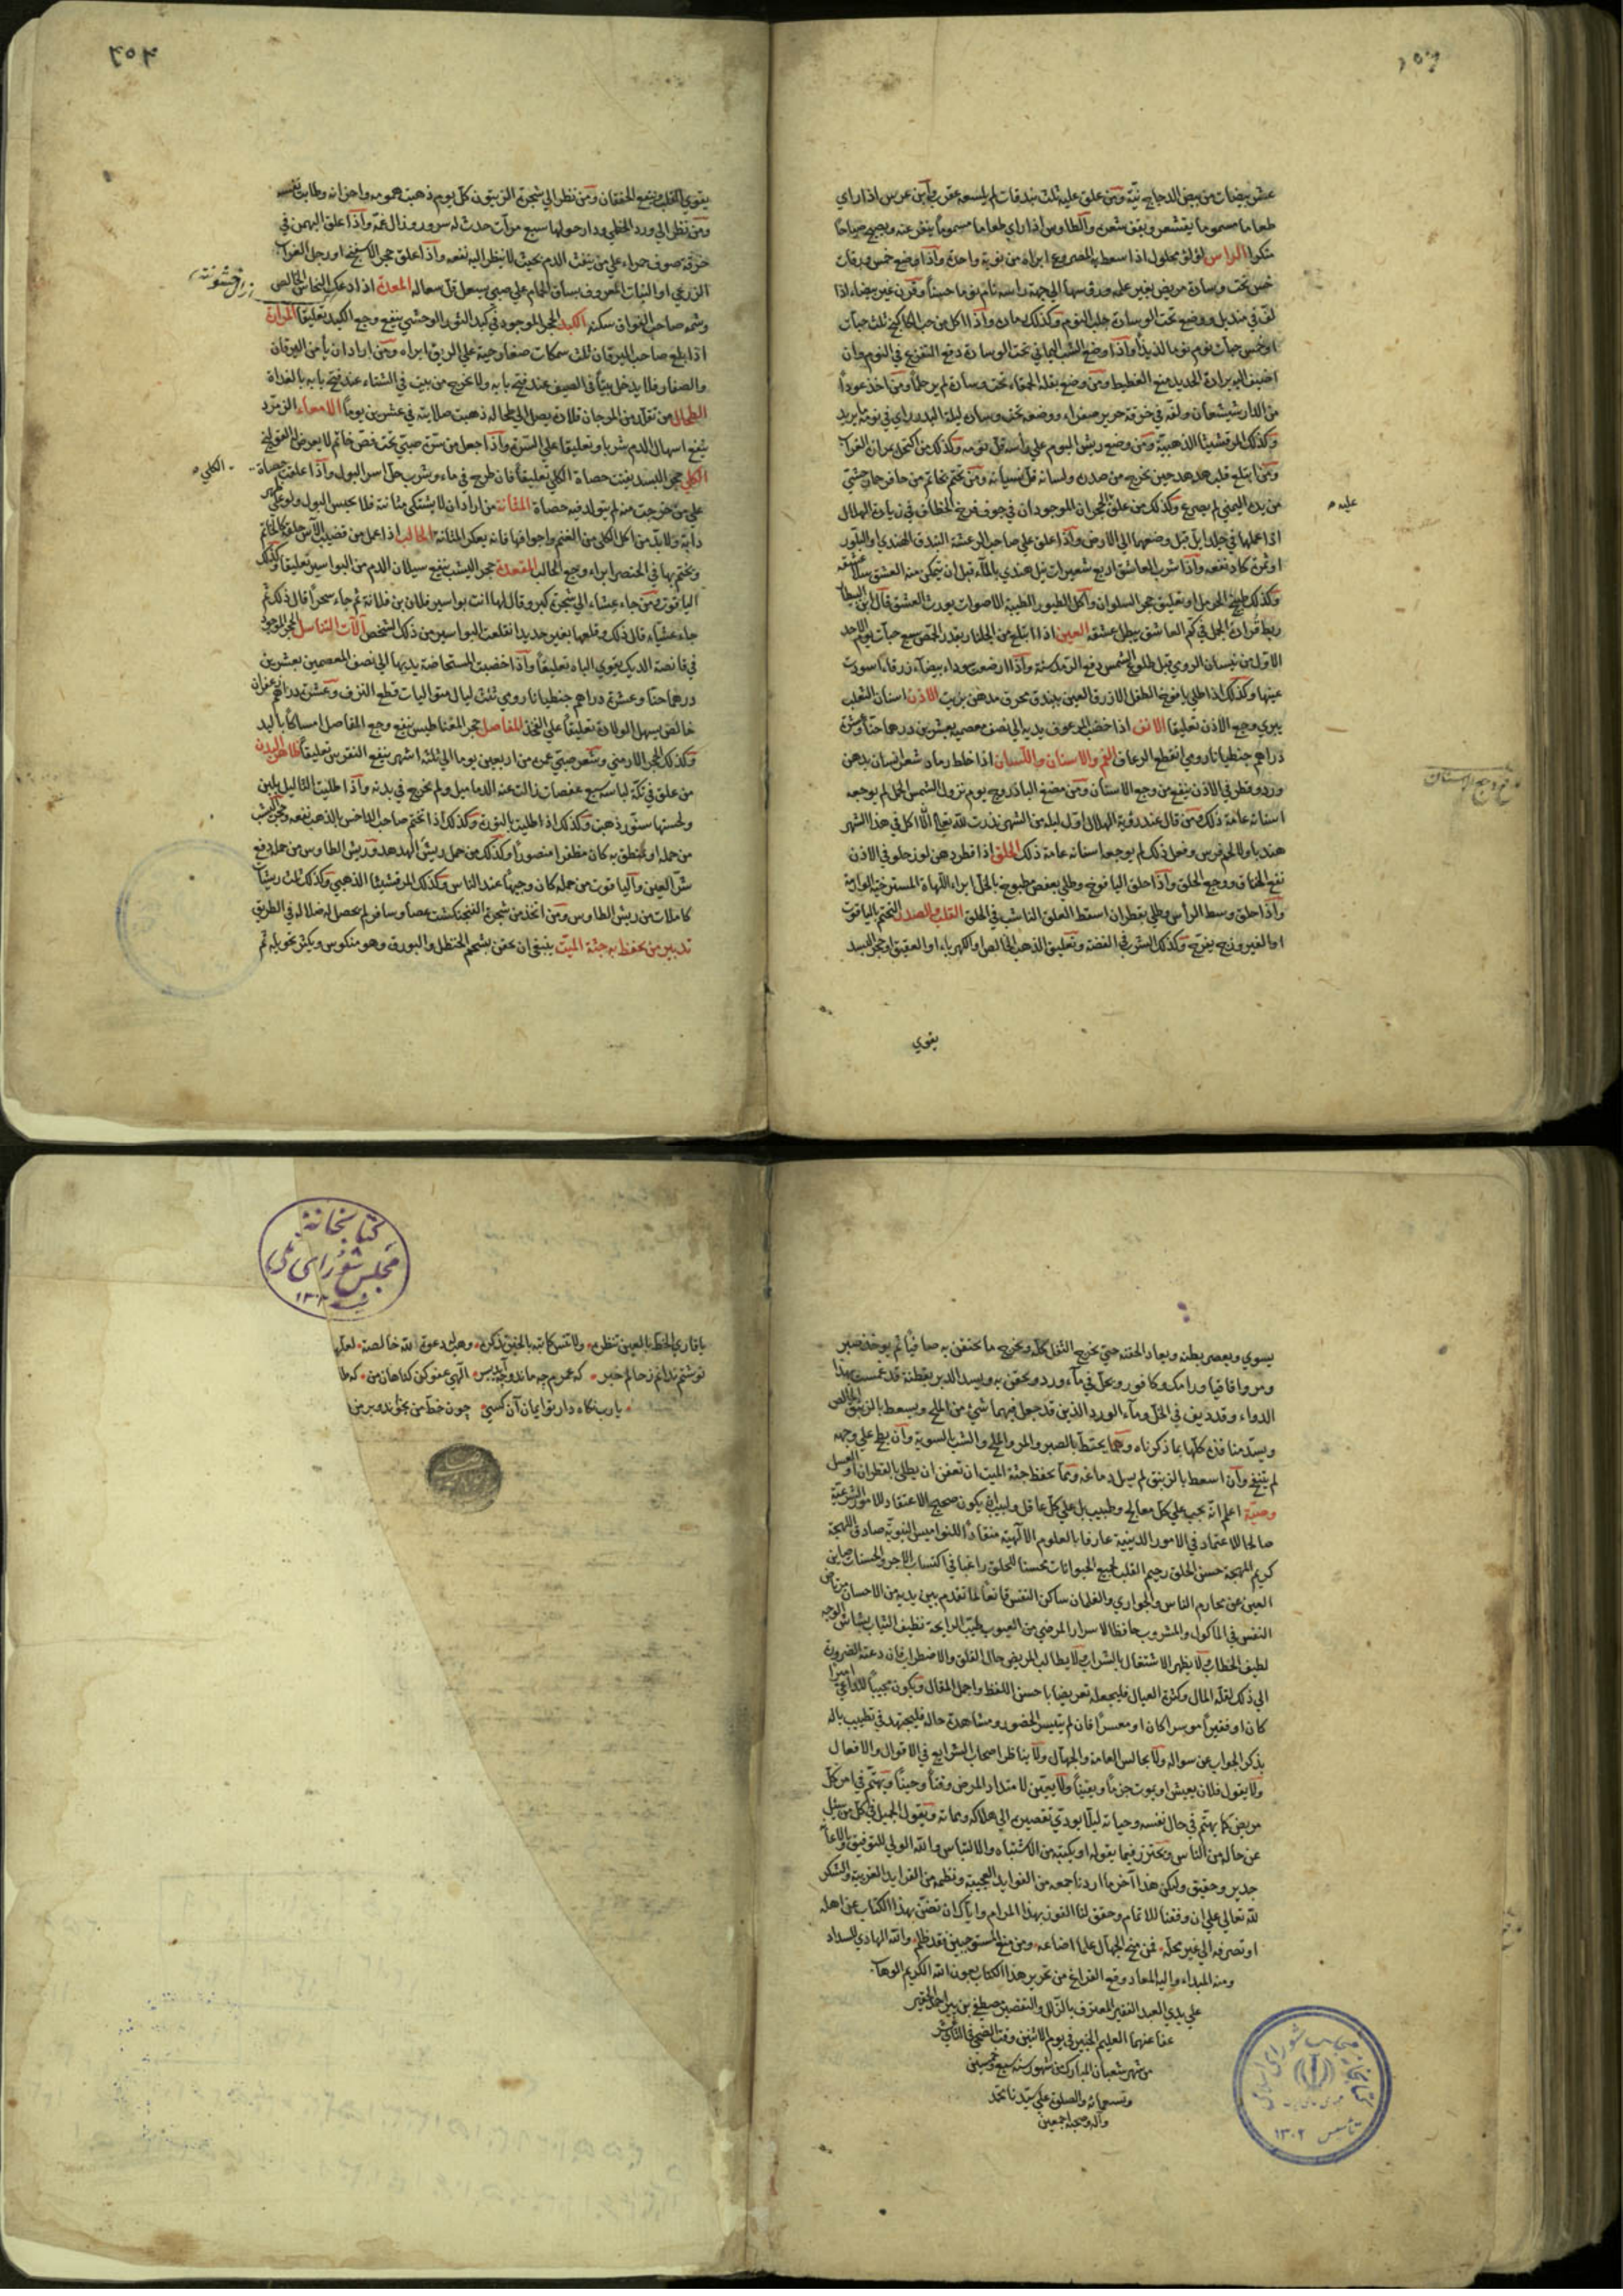 عشر بيضات من بيض الدجاج نيّة ومن علق عليه ثلث بندقات لم يلسعه عقرب وابن عرس اذا راى
طعاما مسموما يقشعر ويقف شعره والطاوس اذا راي طعاما مسموماً ينفر عنه ويصيح صياحا
منكرا الراس لؤلؤ محلول اذا سعط به المصروع ابراه من نوبة واحدة واذا وضع خمس ورقات
خس تحت وسادة مريض بغير علمه ورؤسها الي جهة راسه نام نوما حسناً وقرن عنز بيضاء اذا
لف في منديل ووضع تحت الوسادة جلب النوم وكذلك مرارته واذا اكل من حب الكاكنج ثلث حبات
او خمس حبات نوم نوما لذيذاً واذا وضع الشب اليماني تحت الوسادة دفع التفزع في النوم وان
اضيف اليه برادة الحديد منع الغطيط ومن وضع بقلة الحمقاء تحت وسادة لم ير حلماً ومن اخذ عوداً
من الدارشيشعان ولفه في خرقة حرير صفراء ووضعه تحت وساده ليلة البدر راي في نومه ما يريد
وكذلك المرقشيثا الذهبية ومن وضع ريش البوم علي راسه قل نومه وكذلك من اكتحل بمرارة الغراب
ومن ابتلع قلب هدهد حين يخرج من صدره ولسانه قل نسيانه ومن تختم بخاتم من حافر حمار وحشي
من يده اليمني لم يصرع وكذلك من علق الحجران الموجودان في جوف فرخ الخطاف في زيادة الهلال
عليه
اذا عملها في جلد ايل قبل وضعهما الي الارض واذا علق علي صاحب الرعشة البندق الهندي والبلور
او شرب كاد نفعه واذا شرب العاشق اربع شعيرات نيل هندي بالماء قبل ان يتمكن منه العشق سلا عشقه
وكذلك طبيخ الحرمل او تعليق حجر السلوان واكل الطيور الطيبة الاصوات يورث العشق قال ابن البيطار
ربط قراد الجمل في كم العاشق يبطل عشقه العين اذا ابتلع من الجلنار بقدر الحمص سبع حبات يوم الاحد
الاول من نيسان الرومي قبل طلوع الشمس دفع الرمد سنة واذا ارضعت سوداء بيضاء زرقاء اسودت
عينها وكذلك اذا طلي يافوخ الطفل الازرق العين ببندق محرق مدهن بزيت الاذن اسنان الثعلب
يبري وجع الاذن تعليقا الانف اذا خضب المرعوف يديه الي نصف معصميه بعشرين درهما حنا وعشرة
دراهم جنطيانا رومي انقطع الرعاف الفم والاسنان واللسان اذا خلط رماد شعر انسان بدهن
ورد وقطر في الاذن ينفع من وجع الاسنان ومن مضغ الباذروج يوم نزول الشمس الحمل لم يوجعه
اسنانه عامة ذلك من قال عند رؤية الهلال اول ليلة من الشهر نذرت لله تعالي الّا اكل في هذا الشهر
هندباء ولا لحم فرس وفعل ذلك لم يوجعه اسنانه عامة ذلك الحلق اذا قطر دهن لوز حلو في الاذن
نفع الخناق ووجع الحلق واذا حلق اليافوخ وطلي بعفص مطبوخ بالخل ابراء اللهاة المسترخية الوارمة
واذا حلق وسط الرأس وطلي بقطران اسقط العلق الناشب في الحلق القلب والصدر التختم بالياقوت
او الفيروزج يفرح وكذلك البشر في الفضة وتعليق الذهب الخالص او الكهرباء او العقيق او حجر البسد
يقوي
يقوي القلب وينفع الخفقان ومن نظر الي شجرة الزيتون كل يوم ذهبت همومه واحزانه وطابت نفسه
ومن نظر الي ورد الخطمي ودار حولها سبع مرات حدث له سرور وزال غمه واذا علق البهمن في
خرقة صوف حمراء علي من ينفث الدم بحيث لا ينظر اليه نفعه واذا علق حجر الاسفنج او رجل الغراب
الزرعي او النبات المعروف بساق الحمام علي صبي يسعل قل سعاله المعدة اذا دعك النحاس الخالص
وشمه صاحب الفواق سكنه الكبد الحجر الموجود في كبد الثور الوحشي ينفع وجع الكبد تعليقا المرارة
اذا بلع صاحب اليرقان ثلث سمكات صغار حية علي الريق ابراه ومن اراد ان يأمن اليرقان
والصفار فلا يدخل بيتاً في الصيف عند فتح بابه ولا يخرج من بيت في الشتاء عند فتح بابه بالغداة
الطحال من تقلد من المرجان قلادة يصل الي طحاله ذهبت صلابته في عشرين يوماً الامعاء الزمرد
ينفع اسهال الدم شربا وتعليقا علي السرة واذا جعل من سرة صبي تحت فص خاتم لا يعرض القولنج
الكلي حجر البسد يفتت حصاة الكلي تعليقاً فان طرح في ماء وشرب حل اسر البول واذا علقت حصاة
الكلي
علي من خرجت منه لم يتولد فيه حصاة المثانة من اراد ان لا يشتكي مثانته فلا يحبس البول ولو علي ظهر
دابة ولا بد من اكل الكلي من الغنم واجوافها فانه يعكر المثانة الحالب اذا عمل من قضيب الآس حلقة كالخاتم
ويختم بها في الخنصر ابراء وجع الحالب المقعدة حجر اليشب ينفع سيلان الدم من البواسير تعليقا وكذلك
الياقوت ومن جاء عشاء الي شجرة كبر وقال لها انت بواسير فلان بن فلانة ثم جاء سحراً قال ذلك ثم
جاء عشياء قال ذلك وقلعها بغير حديد انقلعت البواسير من ذلك الشخص آلات التناسل الحجر الموجود
في قانصة الديك يقوي الباه تعليقاً واذا خضبت المستحاضة يديها الي نصف المعصمين بعشرين
درهما حنا وعشرة دراهم جنطيانا رومي ثلث ليال متواليات قطع النزف وعشرة دراهم زعفران
خالص يسهل الولادة تعليقاً علي الفخذ المفاصل حجر المغناطيس ينفع وجع المفاصل امساكاً باليد
وكذلك الحجر الارمني وشعر صبي عمره من اربعين يوما الي ثلثة اشهر ينفع النقرس تعليقاً ظاهر البدن
من علق في تكة لباسه سبع عفصات زالت عنه الدماميل ولم تخرج في بدنه واذا طليت الثاليل بلبن
ولحستها سنور ذهبت وكذلك اذا طليت بالنورة وكذلك اذا تختم صاحب الداحس بالذهب نفعه وحجر اليشب
من حمله او تمنطق به كان مظفرا منصوراً وكذلك من حمل ريش الهدهد وريش الطاوس من حمله دفع
شر العين والياقوت من حمله كان وجيهاً عند الناس وكذلك المرقشيثا الذهبي وكذلك ثلث ريشات
كاملات من ريش الطاوس ومن اتخذ من شجرة الفنجنكشت عصا وسافر لم يحصل له ضلالة في الطريق
تدبير من يحفظ به جثة الميت ينبغي ان يحقن بشحم الحنظل والبورق وهو منكوس ويكثر تحويله ثم
يسوي ويعصر بطنه ويعاد الحقنة حتي يخرج الثفل كله ويخرج ما يحتقن به صافياً ثم يوخذ صبر
ومر واقاقيا ورامك وكافور ويحل في ماء ورد ويحقن به ويسد الدبر بقطنة قد غمست بهذا
الدواء وقد ديف في الخل وماء الورد الذين قد جعل فيهما شيء من الملح ويسعط بالزيبق الخالص
ويسد منافذه كلها بما ذكرناه ومما يحفظ بالصبر والمر والملح والشب بالسوية وان بطح علي وجهه
لم ينتفخ وان اسعط بالزيبق لم يسل دماغه ومما يحفظ جثة الميت ان تعفن ان يطلي بالقطران او العسل
وصية اعلم انه يجب علي كل معالج وطبيب بل علي كل عاقل ولبيب ان يكون صحيح الاعتقاد للامور الشرعية
صالحا للاعتماد في الامور الدينية عارفا بالعلوم الالهية منقاداً للنواميس النبوية صادق اللهجة
كريم المهجة حسن الخلق رحيم القلب لجميع الحيوانات محسنا للخلق راغبا في اكتساب الاجر والحسنات صاين
العين عن محارم الناس والجواري والغلمان ساكن النفس قانعاً لما تقدم بين يديه من الاحسان
النفس في الماكول والمشروب حافظا لاسرار المرضي من العيوب طيب الرايحة نظيف الثياب بشاش الوجه
لطيف الخطاب ولا يظهر الاشتغال بالشراب ولا يطالب المريض حال القلق والاضطراب فان دعته الضرورة
الي ذلك لقلة المال وكثرة العيال فليجعله تعريضا باحسن اللفظ واجمل المقال ويكون مجيباً للداعي اميرا
كان او فقيراً موسرا كان او معسراً فان لم يتيسر الحضور ومشاهدة حاله فليجتهد في تطييب باله
بذكر الجواب عن سواله ولا يجالس العامة والجهال ولا يناظر اصحاب الشرايع في الاقوال والافعال
ولا يقول فلان يعيش او يموت جزماً ويقيناً ولا يعين لامتداد المرض وقتاً وحيناً ويهتم في امر كل
مريض كما يهتم في حال نفسه وحياته ليلا يودي تقصيره الي هلاكه ومماته ويقول الجميل في كل من سئل
عن حاله من الناس ويحترز فيما يقوله او يكتبه من الاشتباه والالتباس والله الولي للتوفيق وبالاعانة
جدير وحقيق وليكن هذا آخر ما اردنا جمعه من الفوايد العجيبة ونظمه من الفرايد الغريبة والشكر
لله تعالي علي ان وفقنا للاتمام وحقق لنا الفوز بهذا المرام واياك ان تضن بهذا الكتاب عن اهله
او تصرفه الي غير محله فمن منح الجهال علما اضاعه ومن منع المستوجبين فقد ظلم والله الهادي للسداد
ومنه المبداء واليه المعاد وقع الفراغ من تحرير هذا الكتاب بعون الله الكريم الوهاب
علي يدي العبد الفقير المعترف بالزلل والتقصير مصطفي بن پير احمد الحقير
عفا عنهما العليم الخبير في يوم الاثنين وقت الضحي
من شهر شعبان المبارك من شهور سنة سبع وخمسين
وتسعمائه والصلوة علي سيدنا محمد
وآله وصحبه اجمعين
كتابخانه
مجلس شورای ملی
يا قاري الخط بالعين تنظره ولا تنس كاتبه بالخير تذكره وهب له دعوة لله خالصة
نوشتم
يارب نگاه دار بايمان آن كسى چون خط من بخواند و بر من